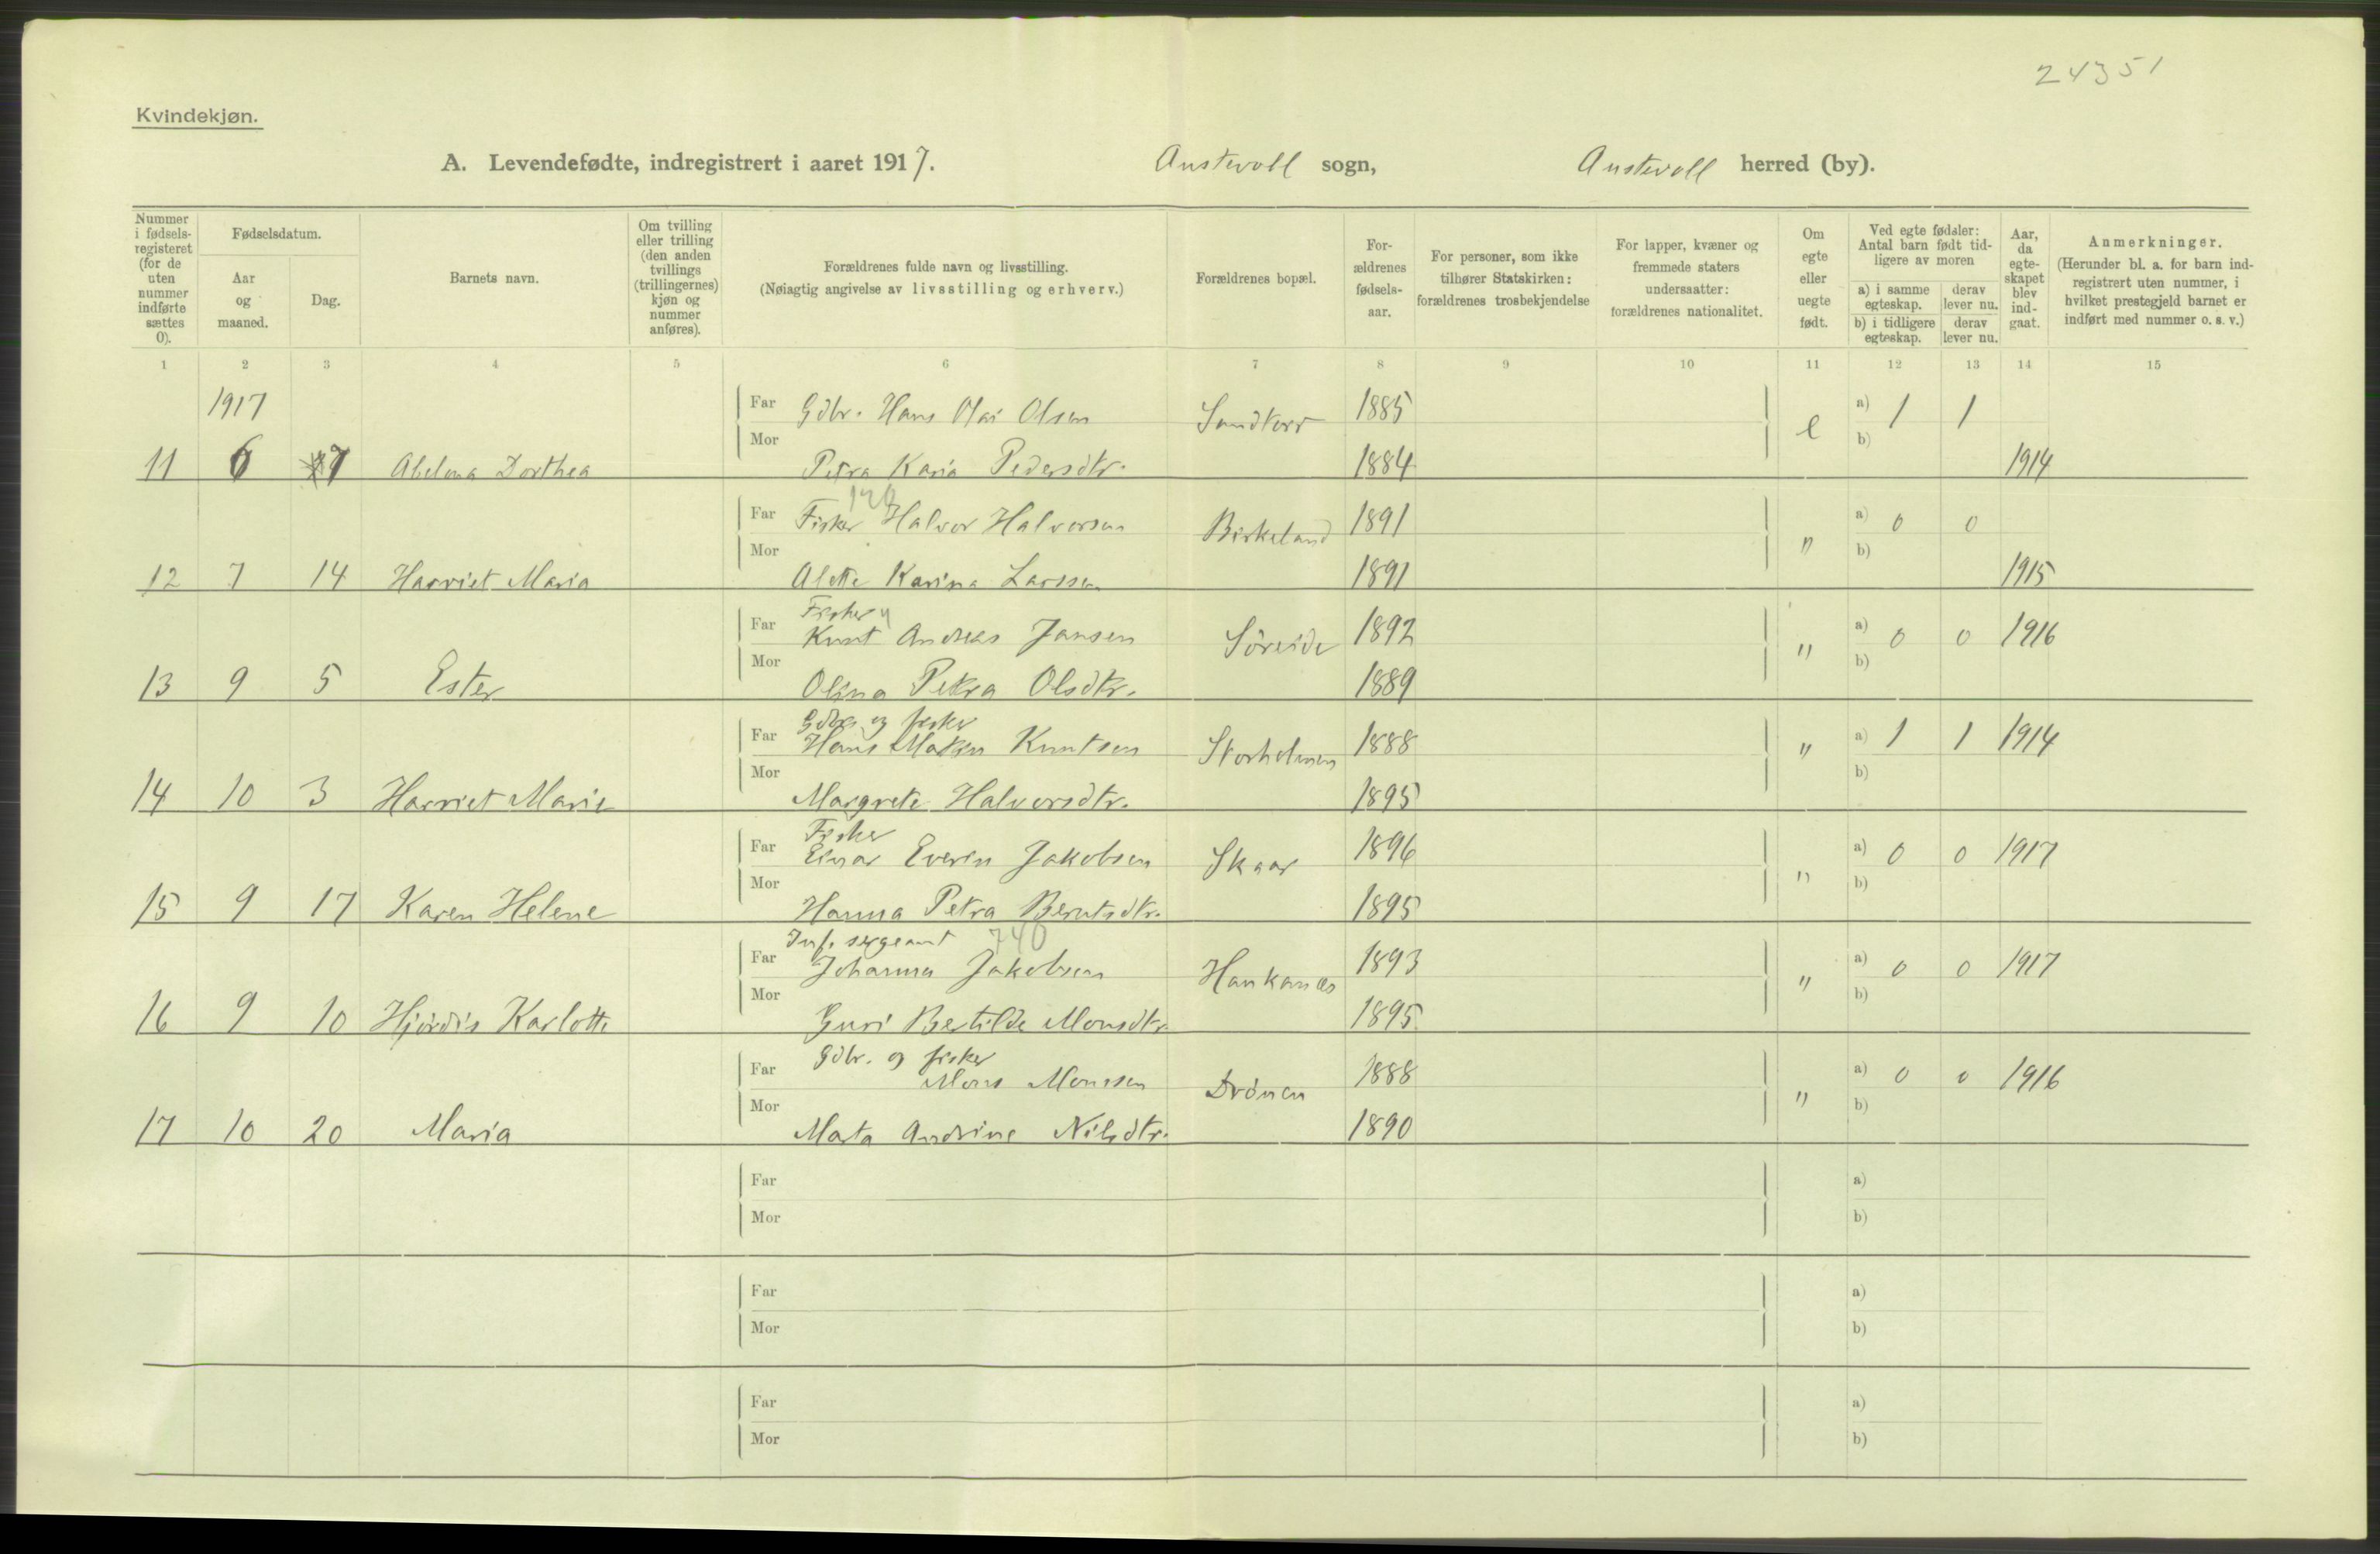 24351
Kvindekjøn.
A. Levendefødte, indregistrert i aaret 1917. Austevoll sogn, Austevoll herred (by).
Nummer i fødsels-registeret (for de uten nummer indførte sættes 0).
Fødselsdatum.
Aar og maaned.
Dag.
Barnets navn.
Om tvilling eller trilling (den anden tvillings (trillingernes) kjøn og nummer anføres).
Forældrenes fulde navn og livsstilling.
(Nøiagtig angivelse av livsstilling og erhverv.)
Forældrenes bopæl.
For-ældrenes fødsels-aar.
For personer, som ikke tilhører Statskirken: forældrenes trosbekjendelse
For lapper, kvæner og fremmede staters undersaatter: forældrenes nationalitet.
Om egte eller uegte født.
Ved egte fødsler: Antal barn født tid-ligere av moren
a) i samme egteskap. derav lever nu.
b) i tidligere egteskap. derav lever nu.
Aar, da egte-skapet blev ind-gaat.
Anmerkninger.
(Herunder bl. a. for barn ind-registrert uten nummer, i hvilket prestegjeld barnet er indført med nummer o. s. v.)
1 2 3 4 5 6 7 8 9 10 11 12 13 14 15
1917 Far Gdbr. Hans Olai Olsen 1885 e a) 1 1
Mor b)
11 6 7 Abelona Dorthea Petra Karia Pedersdtr. 1884 1914
Far Fisker Halvor Halvorsen Birkeland 1891 " a) 0 0
Mor b)
12 7 14 Harriet Maria Alette Karina Larssen 1891 1915
Fisker
Far Knut Andreas Jansen Söreide 1892 " a) 0 0 1916
Mor b)
13 9 5 Ester Olina Petra Olsdtr. 1889
Gdbr. og fisker
Far Hans Knutsen Storholmen 1888 " a) 1 1 1914
Mor b)
14 10 3 Harriet Marie Margrete Halvorsdtr. 1895
Fisker
Far Einar Everin Jakobsen Skaar 1896 " a) 0 0 1917
Mor b)
15 9 17 Karen Helene Hanna Petra Berntsdtr. 1895
Inf. sergeant 740
Far Johannes Jakobsen Haukanes 1893 " a) 0 0 1917
Mor b)
16 9 10 Hjördis Karlotte Guri Bertilde Monsdtr. 1895
Gdbr. og fisker
Far Mons Monssen Drönen 1888 " a) 0 0 1916
Mor b)
17 10 20 Maria Marta Andrine Nilsdtr. 1890
Far a)
Mor b)
Far a)
Mor b)
Far a)
Mor b)